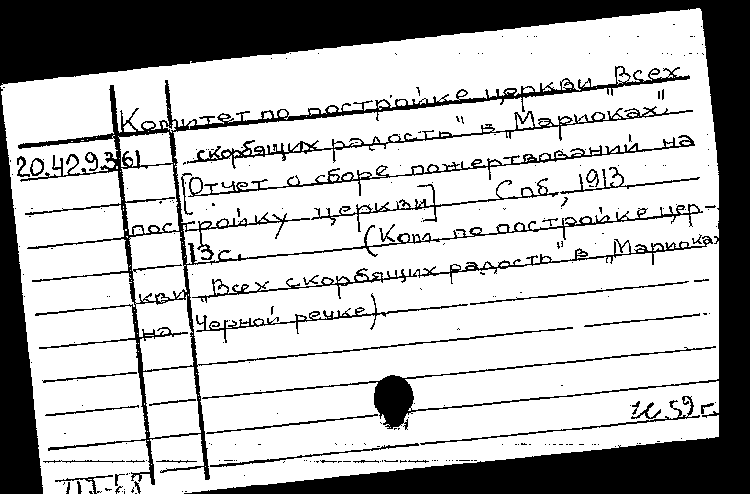 Комитет по постройке церкви „Всех
20.42.9.361 скорбящих радость" в „Мариоках".
[Отчет о сборе пожертвований на
постройку церкви] Спб., 1913
13с. (Ком. по постройке цер-
кви „Всех скорбящих радость" в „Мариоках
на Черной речке).
59 г.
III-68